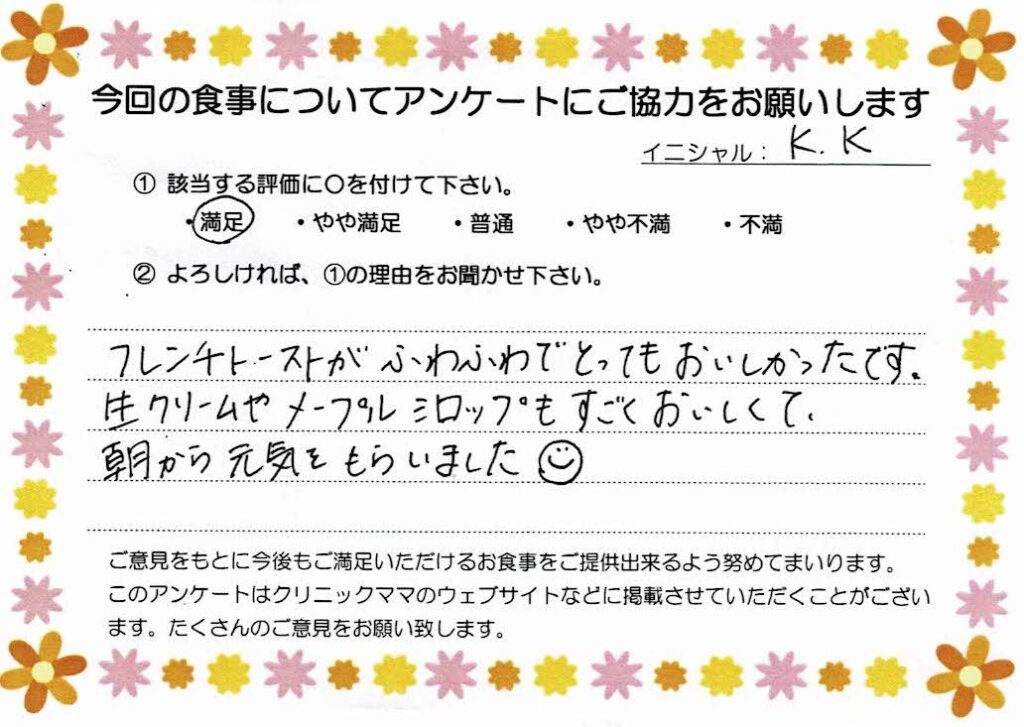 今回の食事についてアンケートにご協力をお願いします
イニシャル： K. K
① 該当する評価に○を付けて下さい。
・満足 ・やや満足 ・普通 ・やや不満 ・不満
② よろしければ、①の理由をお聞かせ下さい。
フレンチトーストが ふわふわでとってもおいしかったです。
生クリームや メープルシロップも すごくおいしくて、
朝から元気をもらいました
ご意見をもとに今後もご満足いただけるお食事をご提供出来るよう努めてまいります。
このアンケートはクリニックママのウェブサイトなどに掲載させていただくことがござい
ます。たくさんのご意見をお願い致します。